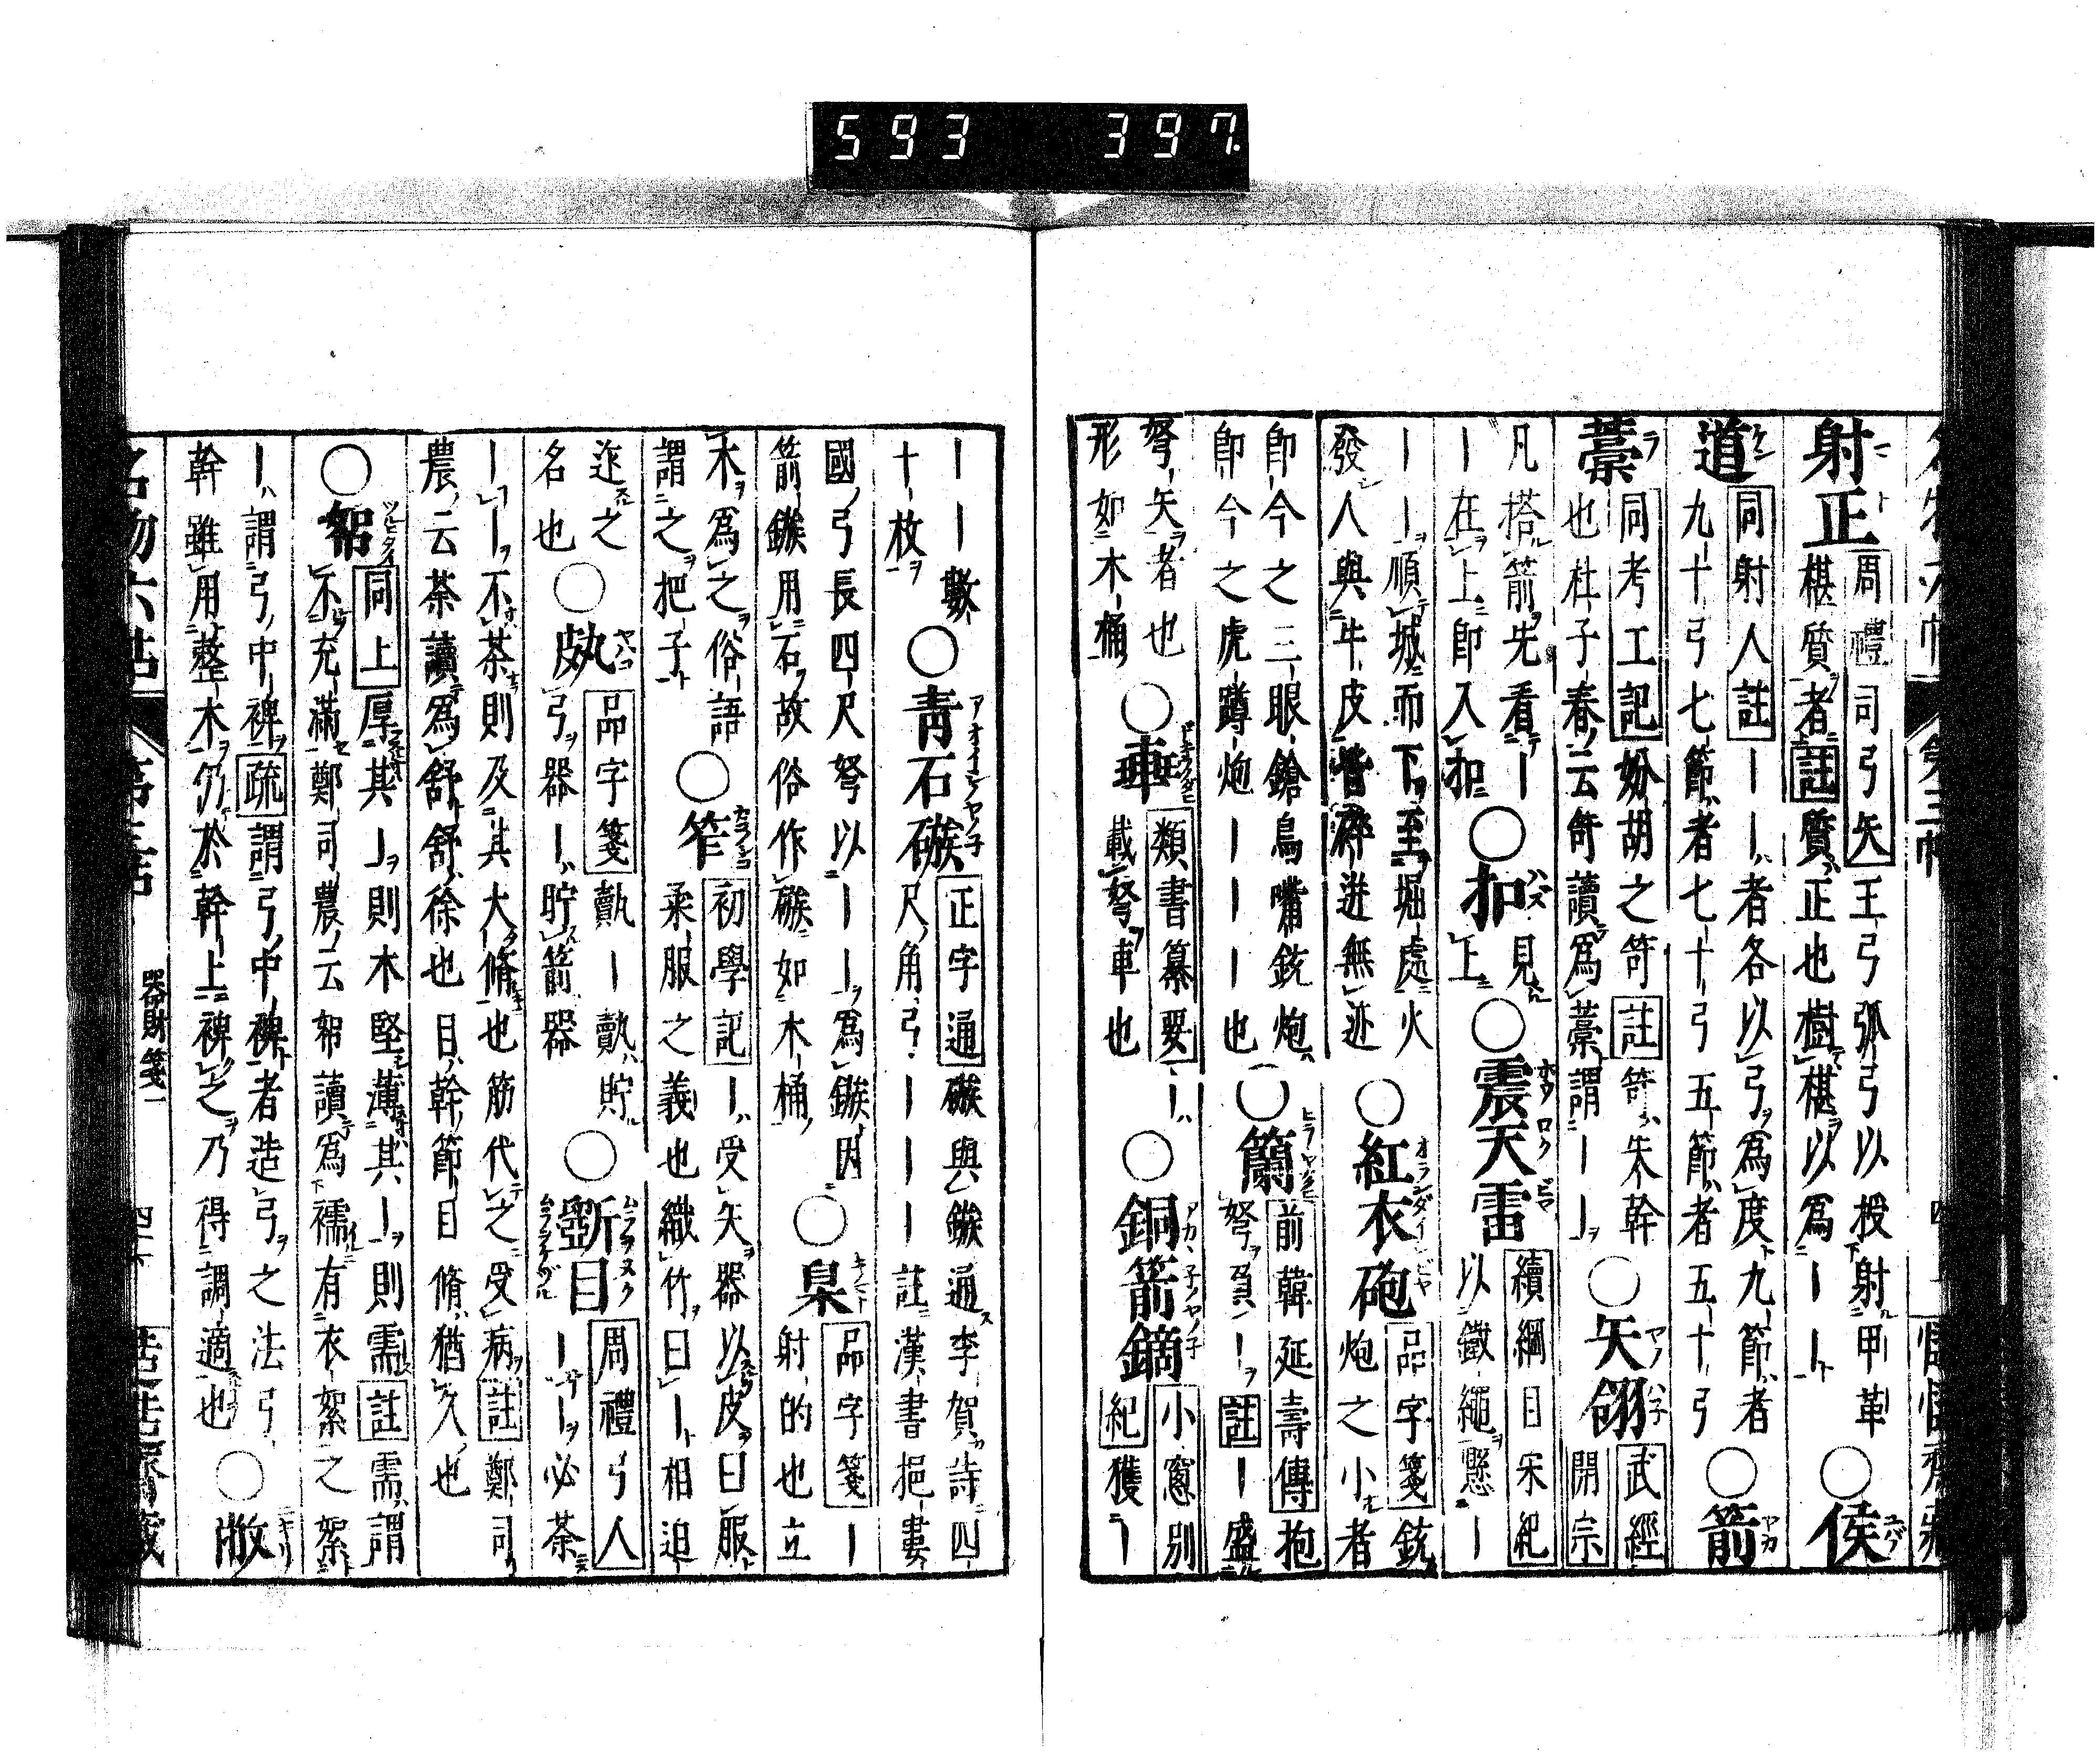 593 397.
射正
周禮司弓矢王弓弧弓以授射甲革
椹質者註質正也樹椹以爲｜｜
○侯
道
同射人註｜｜者各以弓爲度九節者
九十弓七節者七十弓五節者五十弓
○箭
藁
同考工記妢胡之笴註笴矢幹
也杜子春云笴讀爲藁謂｜｜
○矢翎
武經開宗
凡搭箭先看｜
｜在上卽入扣
○扣
見上
○震天雷
續綱目宋紀
以鐵繩懸｜
｜｜順城而下至堀處火
發人與牛皮皆碎迸無迹
○紅衣砲
品字箋銃
炮之小者
卽今之三眼鎗鳥嘴銃炮
卽今之虎蹲炮｜｜｜也
○籣
前韓延壽傳抱
弩負｜註｜盛
弩矢者也
形如木桶
○䡖
類書纂要｜
載弩車也
○銅箭鏑
小窻別
紀獲｜
｜｜數
十枚
○靑石䃚
正字通䃚與鏃通李賀詩四
尺角弓｜｜｜註漢書挹婁
國弓長四尺弩以｜｜爲鏃因
箭鏃用石故俗作䃚如木桶
○臬
品字箋｜
射的也立
木爲之俗語
謂之把子
○笮
初學記｜受矢器以皮曰服
柔服之義也織竹曰｜相迫
迮之
名也
品字箋｜貯
弓器｜貯箭器
○斵目
周禮弓人
｜｜必荼
｜｜不荼則及其大脩也筋代之受病註鄭司
農云荼讀爲舒舒徐也目幹節目脩猶久也
○帤
同上厚其｜則木堅薄其｜則需註需謂
不充滿鄭司農云帤讀爲襦有衣絮之絮
｜謂弓中裨疏謂弓中裨者造弓之法弓
幹雖用整木仍於幹上裨之乃得調適也
器財箋一